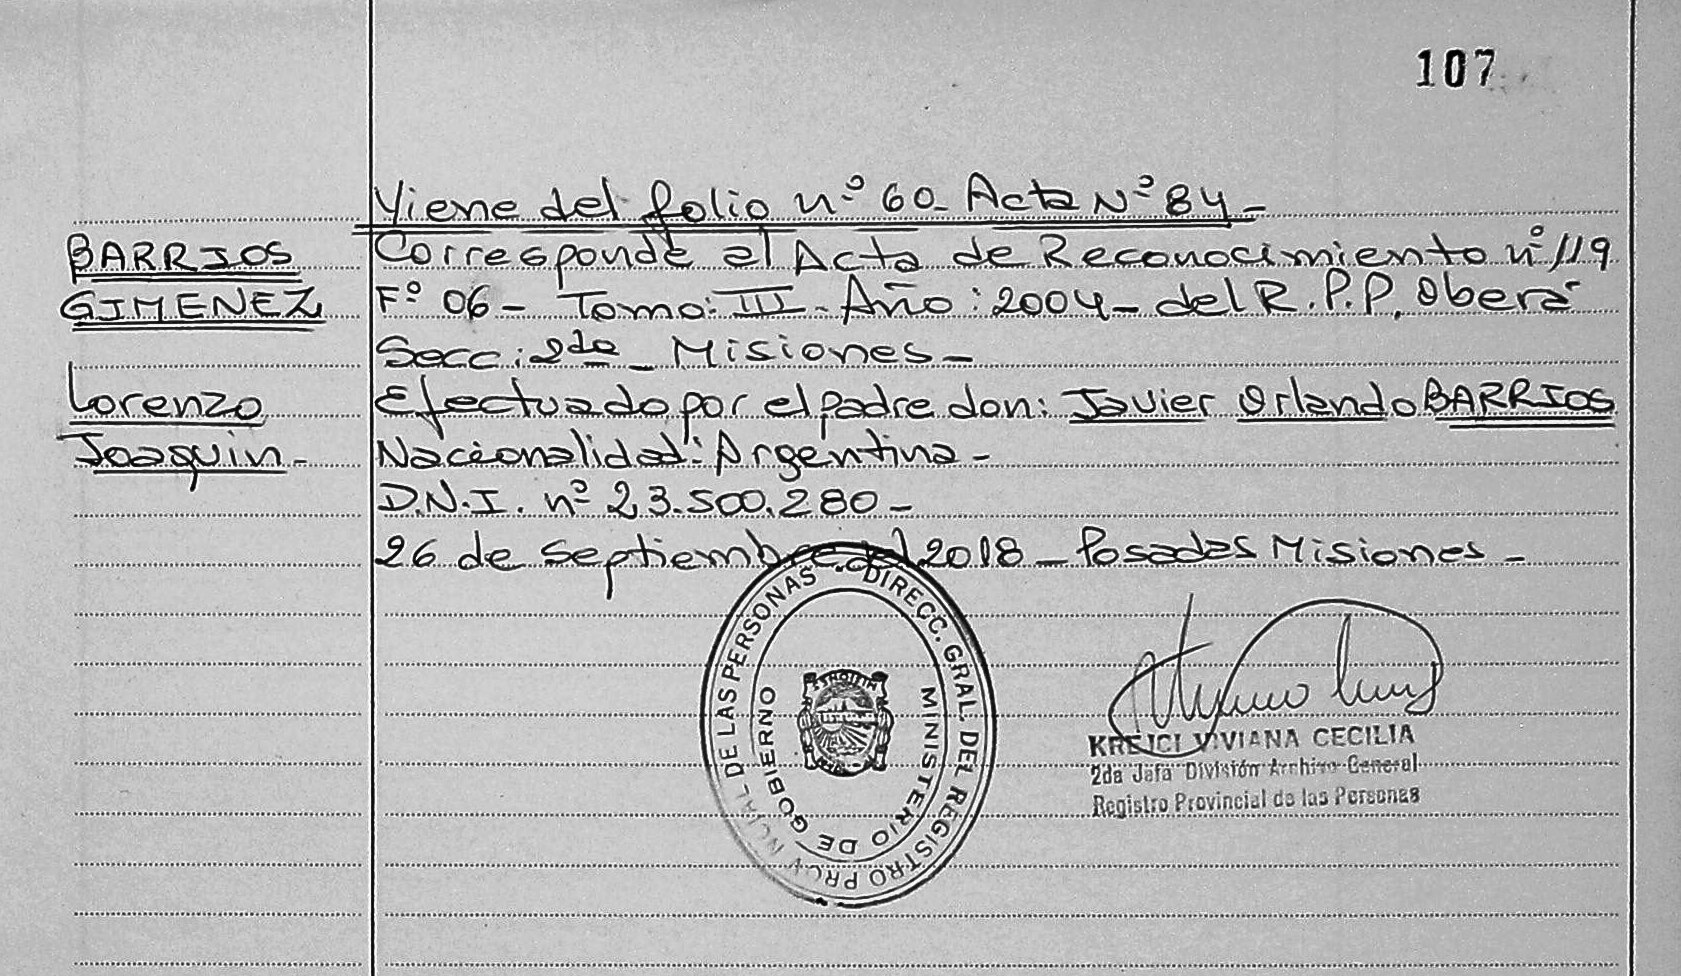 107
Viene del folio nº 60- Acta Nº 84-
BARRIOS
GIMENEZ
Lorenzo
Joaquin-
Corresponde al Acta de Reconocimiento nº 119
Fº 06- Tomo: III- Año: 2004- del R.P.P. Oberá
Secc: 2da- Misiones-
Efectuado por el padre don: Javier Orlando BARRIOS
Nacionalidad: Argentina-
D.N.I. nº 23.500.280-
26 de septiembre del 2018- Posadas Misiones-
DIRECC. GRAL. DEL REGISTRO PROVINCIAL DE LAS PERSONAS
MINISTERIO DE GOBIERNO
MISIONES
KREJCI VIVIANA CECILIA
2da Jefa División Archivo General
Registro Provincial de las Personas